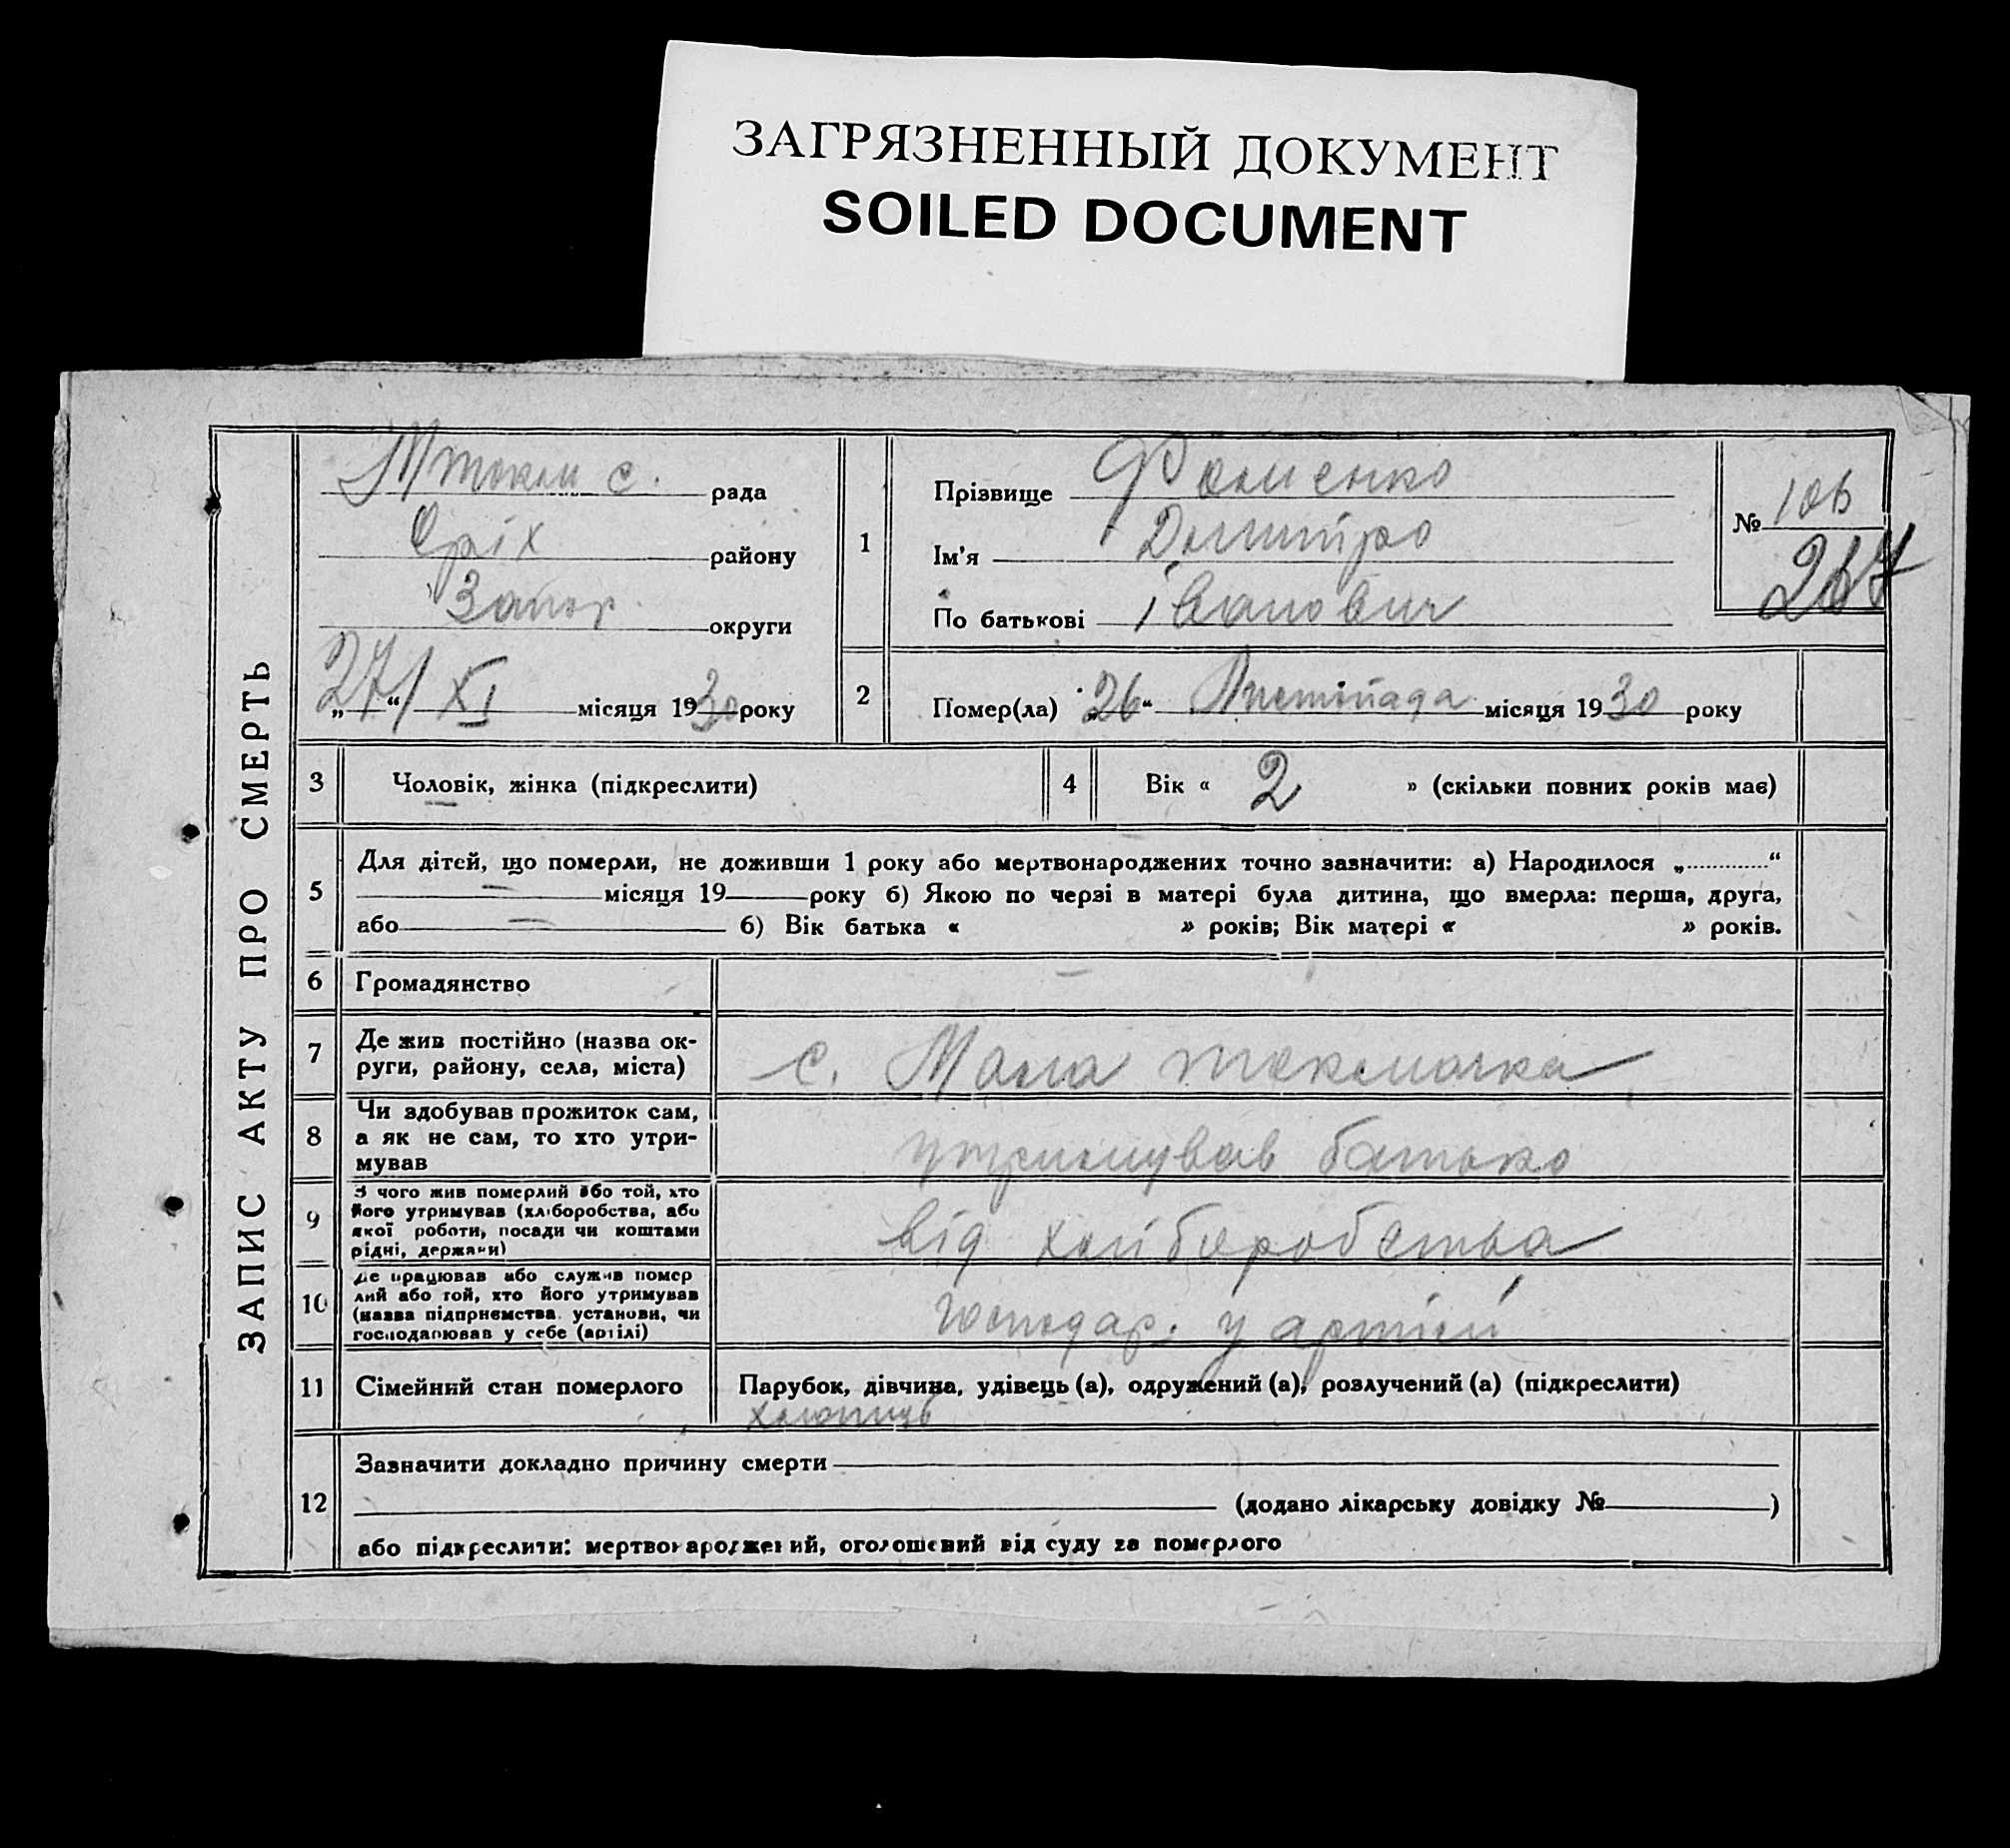 ЗАГРЯЗНЕННЫЙ ДОКУМЕНТ
SOILED DOCUMENT
ЗАПИС АКТУ ПРО СМЕРТЬ
с. рада
Оріх району
Запор. округи
„27“ XI місяця 1930 року
1
Прізвище Фоменко
Ім'я Дмитро
По батькові Іванович
№ 106
2
Помер(ла) „26“ Листопада місяця 1930 року
3 Чоловік, жінка (підкреслити)
4 Вік « 2 » (скільки повних років має)
5
Для дітей, що померли, не доживши 1 року або мертвонароджених точно зазначити: а) Народилося „..............“
місяця 19 року б) Якою по черзі в матері була дитина, що вмерла: перша, друга,
або б) Вік батька « » років; Вік матері « » років.
6 Громадянство
7 Де жив постійно (назва ок-
руги, району, села, міста)
с. Мала Токмачка
8 Чи здобував прожиток сам,
а як не сам, то хто утри-
мував
утримував батько
9 З чого жив померлий або той, хто
його утримував (хліборобства, або
якої роботи, посади чи коштами
рідні, держави)
від хліборобства
10 Де працював або служив помер
лий або той, хто його утримував
(назва підприємства, установи, чи
господарював у себе (артілі)
господар. у артілі
11 Сімейний стан померлого
Парубок, дівчина, удівець (а), одружений (а), розлучений (а) (підкреслити)
хлопець
12 Зазначити докладно причину смерти
(додано лікарську довідку № )
або підкреслити: мертвонароджений, оголошений від суду за померлого